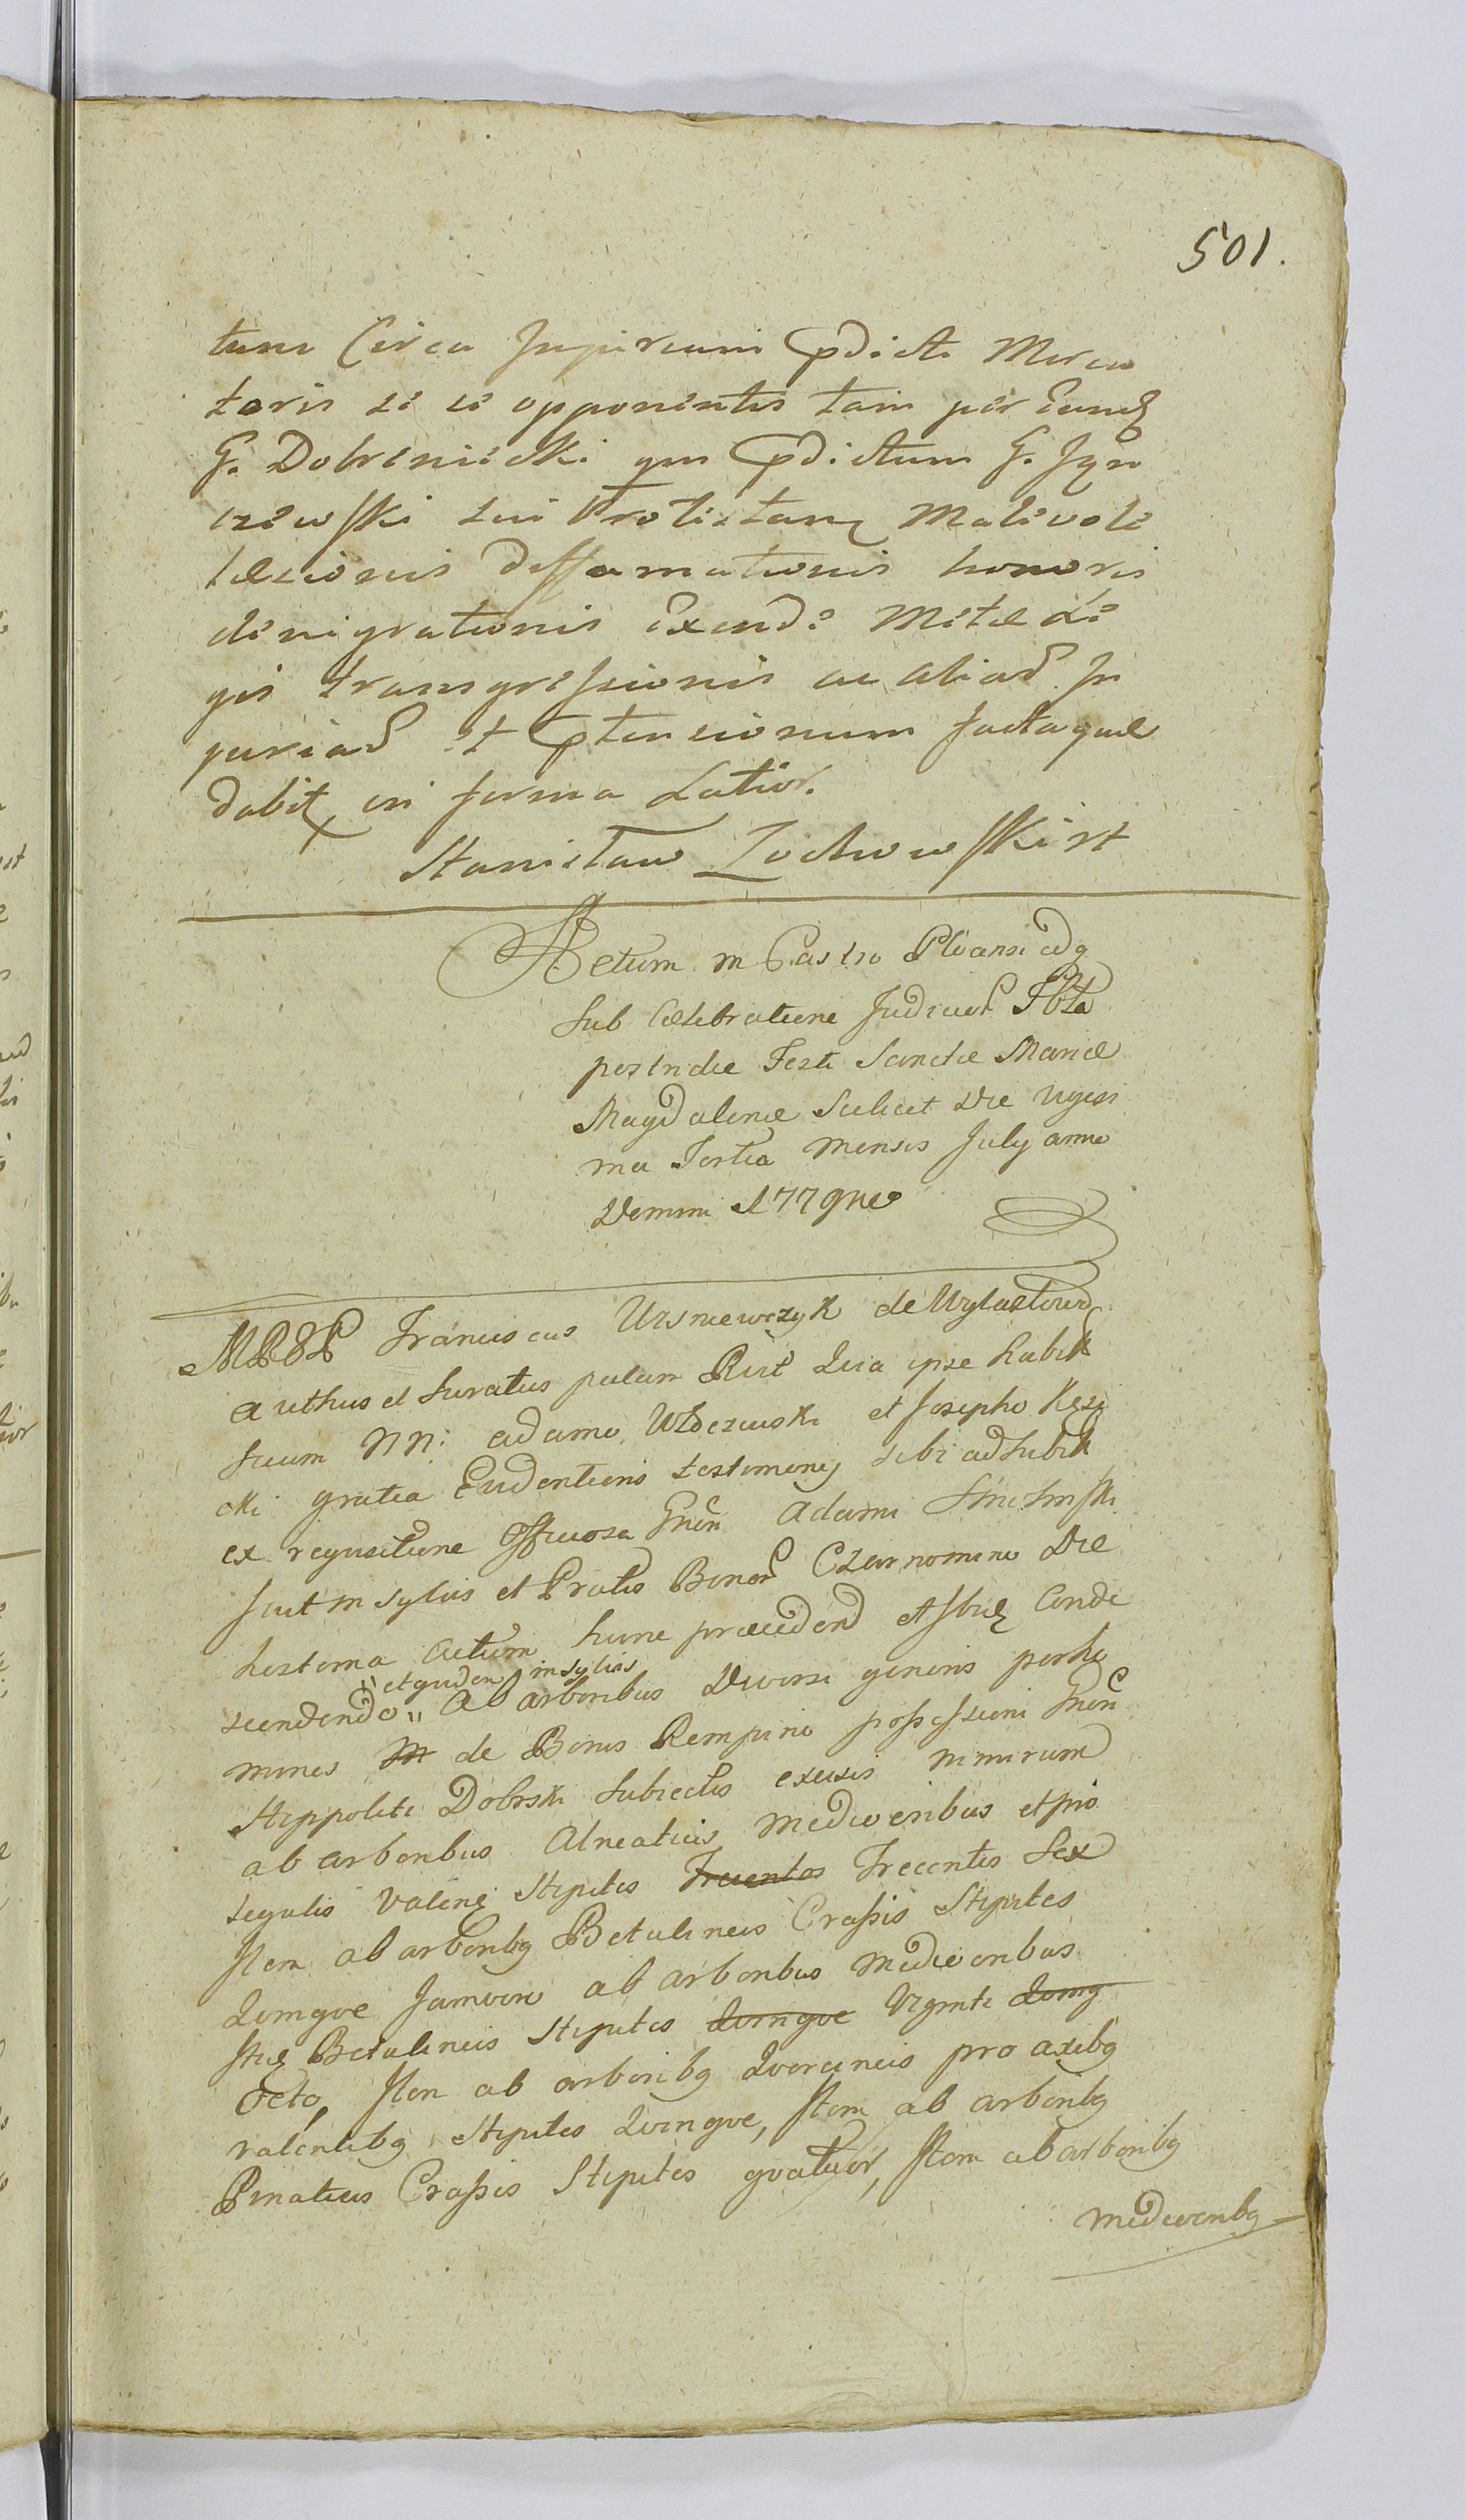 501.
tum Circa Injuriam Pdicti Merca
toris se ei opponentis tam per eundē
G. Dobreniecki qm Pdictum G. Jgn
czewski sui Protestanē Malevole
læsionis deffamationis honoris
denigrationis Exinde Metæ Le
gis transgressionis ac aliaR In
juriaR et Ptensionum factaque
dabit in forma Latior.
Stanisław Zochowski mt
Actum in Castro Plocensi adq
sub Celebratione JudicioR Pbta
postridie Festi Sanctæ Mariæ
Magdalenæ Scilicet Die vigesi
ma Tertia Mensis July anno
Domini 1779no
MROP Franciscus Wisniewczyk de Wylazłowo
authus et Juratus palam Rcit Quia ipse habitt
secum NN: adamo Włoczewski et Josepho Kęsi
cki gratia Evidentioris testimony sibi adhibitt
ex requisitione Officiosa Gnēn Adami Smolinski
fuit in sylvis et Pratis BonoR Czarnominio Die
hesterna actum hunc præcedend et Ibidē Conde
scendendo " et quidem in sylvis " Ab arboribus Diversi generis per ho
mines in de Bonis Rempino possessioni Gnēn
Hippoliti Dobrski Subiectis excisis nimirum
ab arboribus Alneaticis mediocribus et pro
tegulis valenē stipites Trecentos Trecentis Sex
Item ab arboribg Betulineis Crassis Stipites
Quinque Iamvero ab arboribus mediocribus
Itidē Betulineis Stipites Quinque Viginti Quinq
Octo, Item ab arboribg Quercineis pro axibg
valentibg Stipites Quinque, Item ab arboribg
Pinaticis Crassis Stipites quatuor, Item ab arboribg
mediocribg